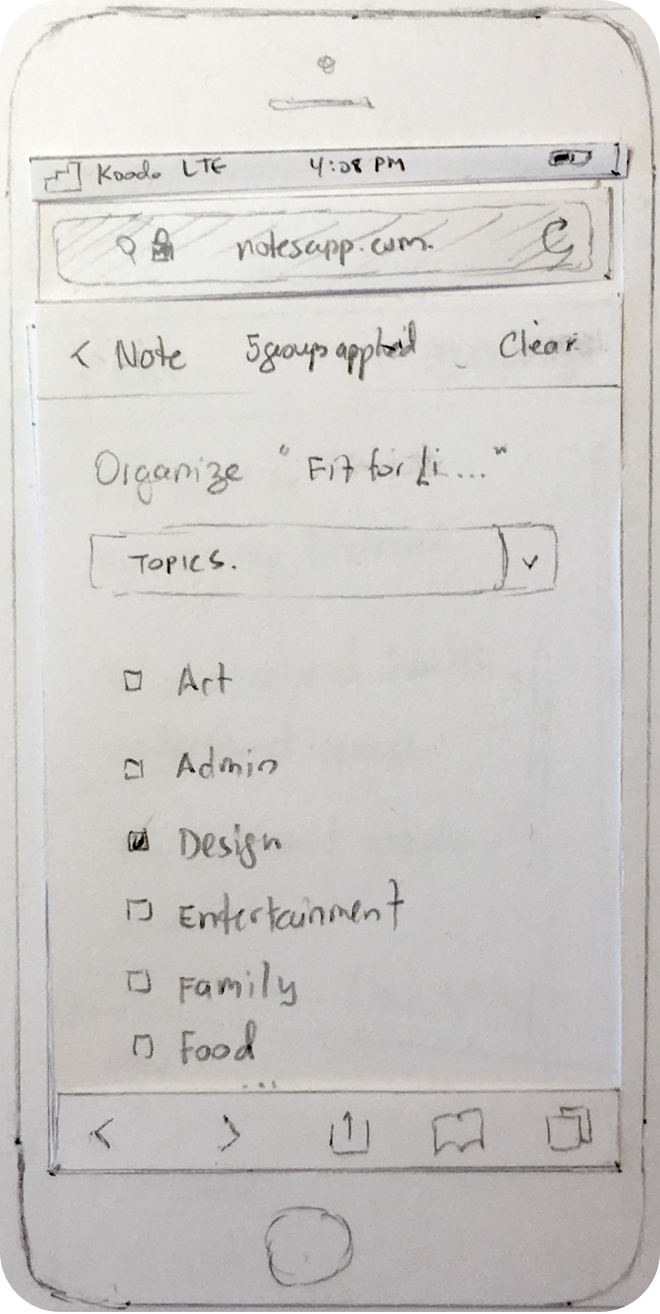 Koodo LTE 4:28 PM
notesapp.com.
< Note 5 groups applied Clear
Organize "Fit for Li..."
TOPICS.
Art
Admin
Design
Entertainment
Family
Food
...